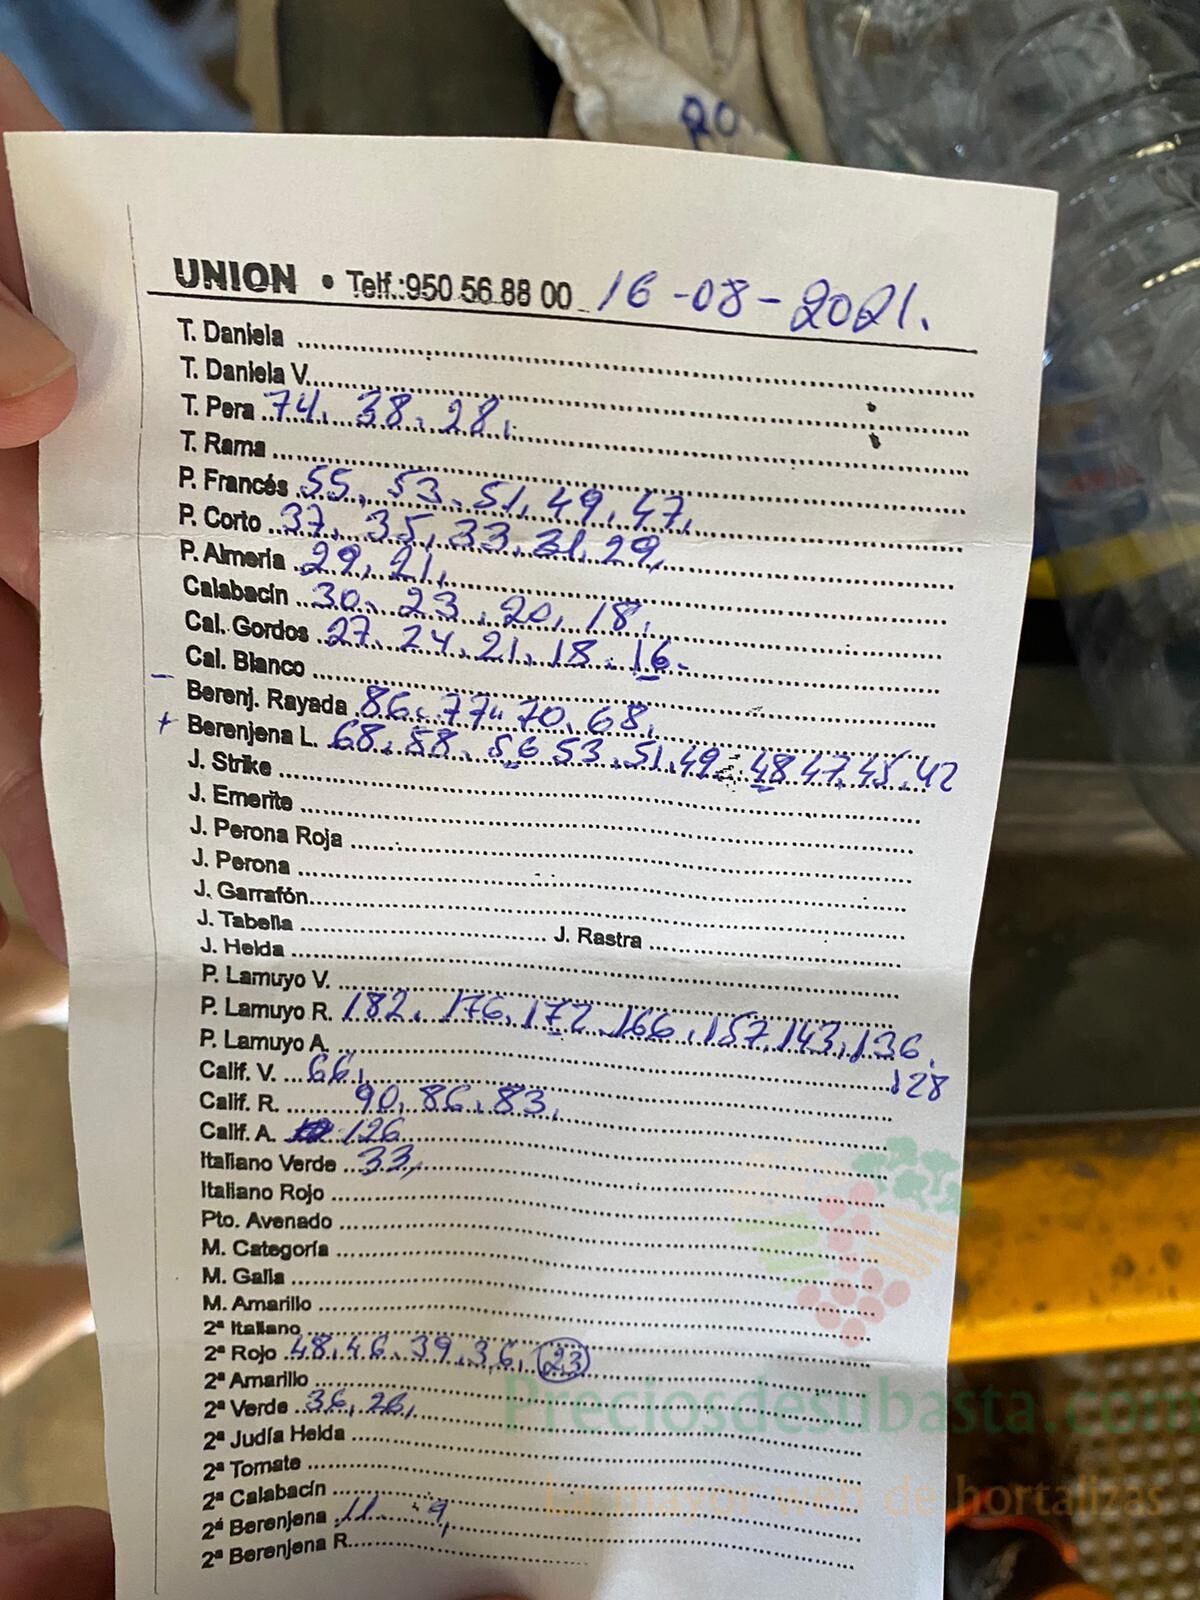 RO
UNION • Telf.:950 56 88 00 16-08-2021.
T. Daniela
T. Daniela V.
T. Pera 74, 38, 28,
T. Rama
P. Francés 55, 53, 51, 49, 47,
P. Corto 37, 35, 33, 31, 29,
P. Almería 29, 21,
Calabacín 30, 23, 20, 18,
Cal. Gordos 27, 24, 21, 18, 16-
Cal. Blanco
- Berenj. Rayada 86, 77, 70, 68,
+ Berenjena L. 68, 58, 56 53, 51, 49, 48 47, 45, 42
J. Strike
J. Emerite
J. Perona Roja
J. Perona
J. Garrafón
J. Tabella J. Rastra
J. Helda
P. Lamuyo V.
P. Lamuyo R. 182, 176, 172, 166, 157, 143, 136,
P. Lamuyo A. 128
Calif. V. 66,
Calif. R. 90, 86, 83,
Calif. A. 126
Italiano Verde 33,
Italiano Rojo
Pto. Avenado
M. Categoría
M. Galia
M. Amarillo
2ª Italiano
2ª Rojo 48, 46, 39, 36, 23
2ª Amarillo
2ª Verde 36, 28,
Preciosdesubasta.com
2ª Judía Helda
2ª Tomate
La mayor web de hortalizas
2ª Calabacín
2ª Berenjena 11, 9,
2ª Berenjena R.